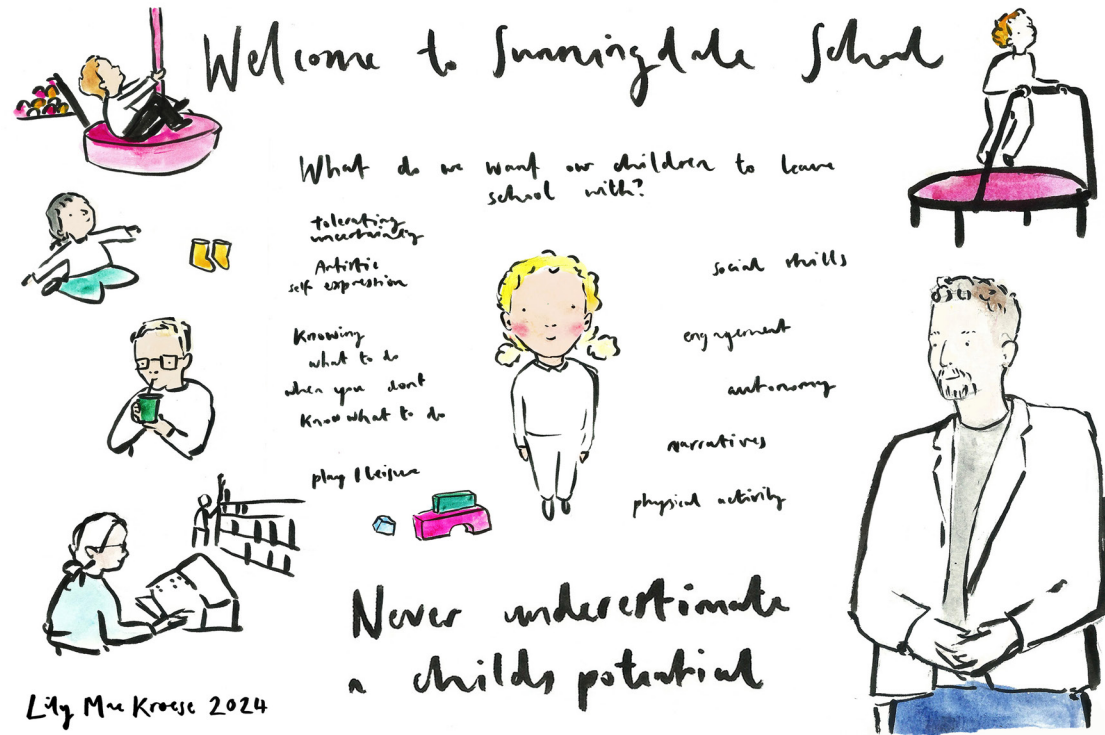 Welcome to Sunningdale School
What do we want our children to leave
school with?
tolerating
uncertainty
Artistic
self expression
Knowing
what to do
when you dont
Know what to do
play / leisure
social skills
engagement
autonomy
narratives
physical activity
Never underestimate
a childs potential
Lily Mae Kroese 2024